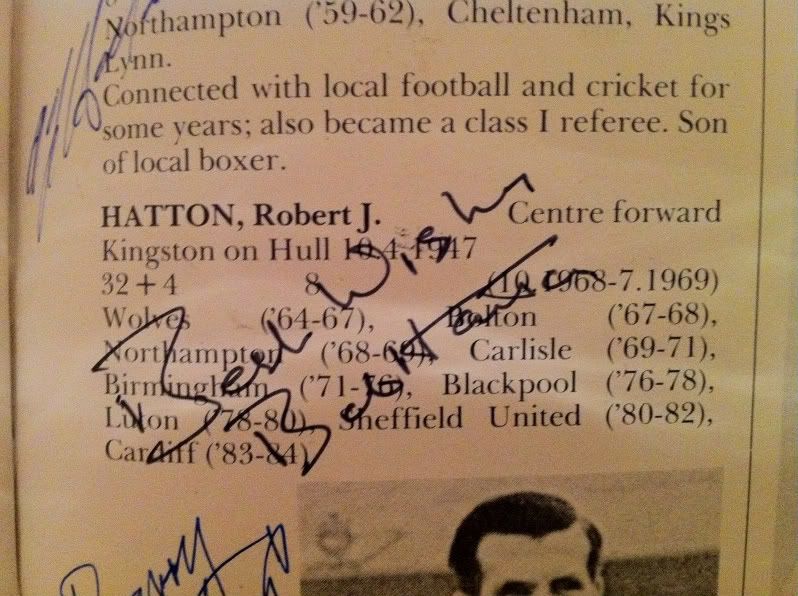 Northampton ('59-62), Cheltenham, Kings
Lynn.
Connected with local football and cricket for
some years; also became a class I referee. Son
of local boxer.
HATTON, Robert J. Centre forward
Kingston on Hull 10.4.1947
32+4 8 (10.1968-7.1969)
Wolves ('64-67), Bolton ('67-68),
Northampton ('68-69), Carlisle ('69-71),
Birmingham ('71-76), Blackpool ('76-78),
Luton ('78-80), Sheffield United ('80-82),
Cardiff ('83-84)
Best Wishes
Bob Hatton